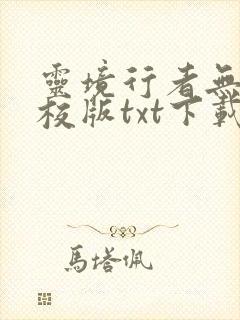 靈境行者無
校版txt下載
馬塔佩